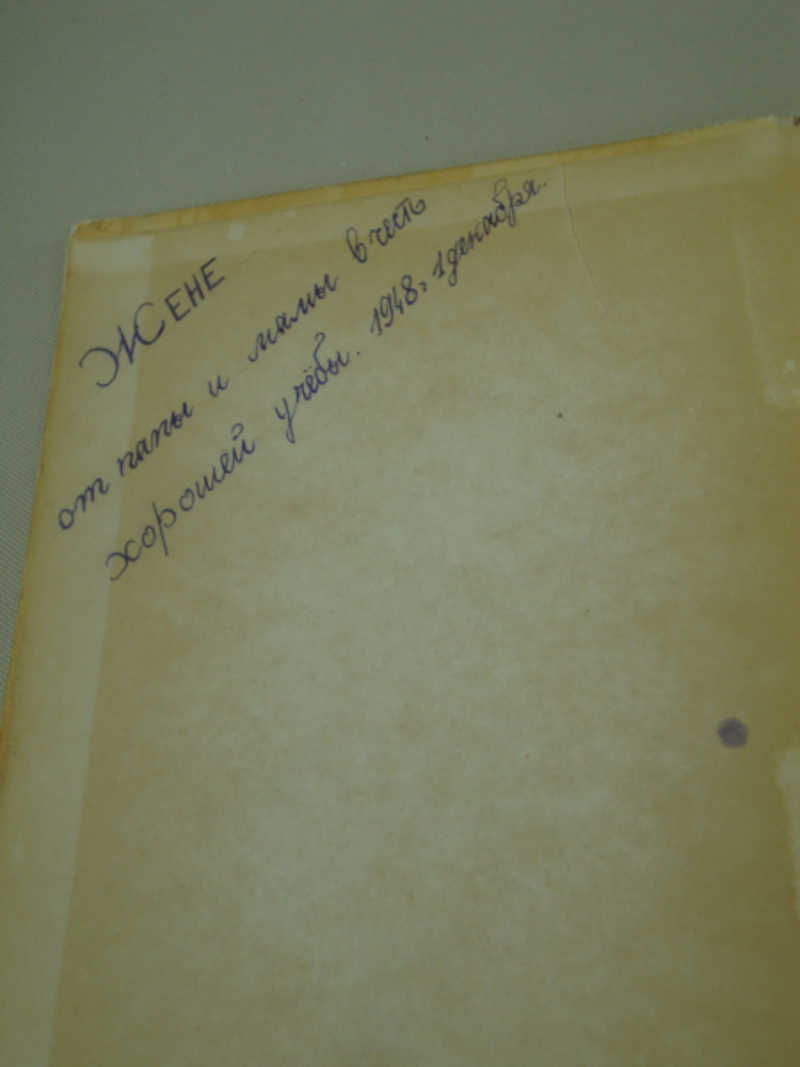 ЖЕНЕ
от папы и мамы в честь
хорошей учёбы. 1948г 1декабря.